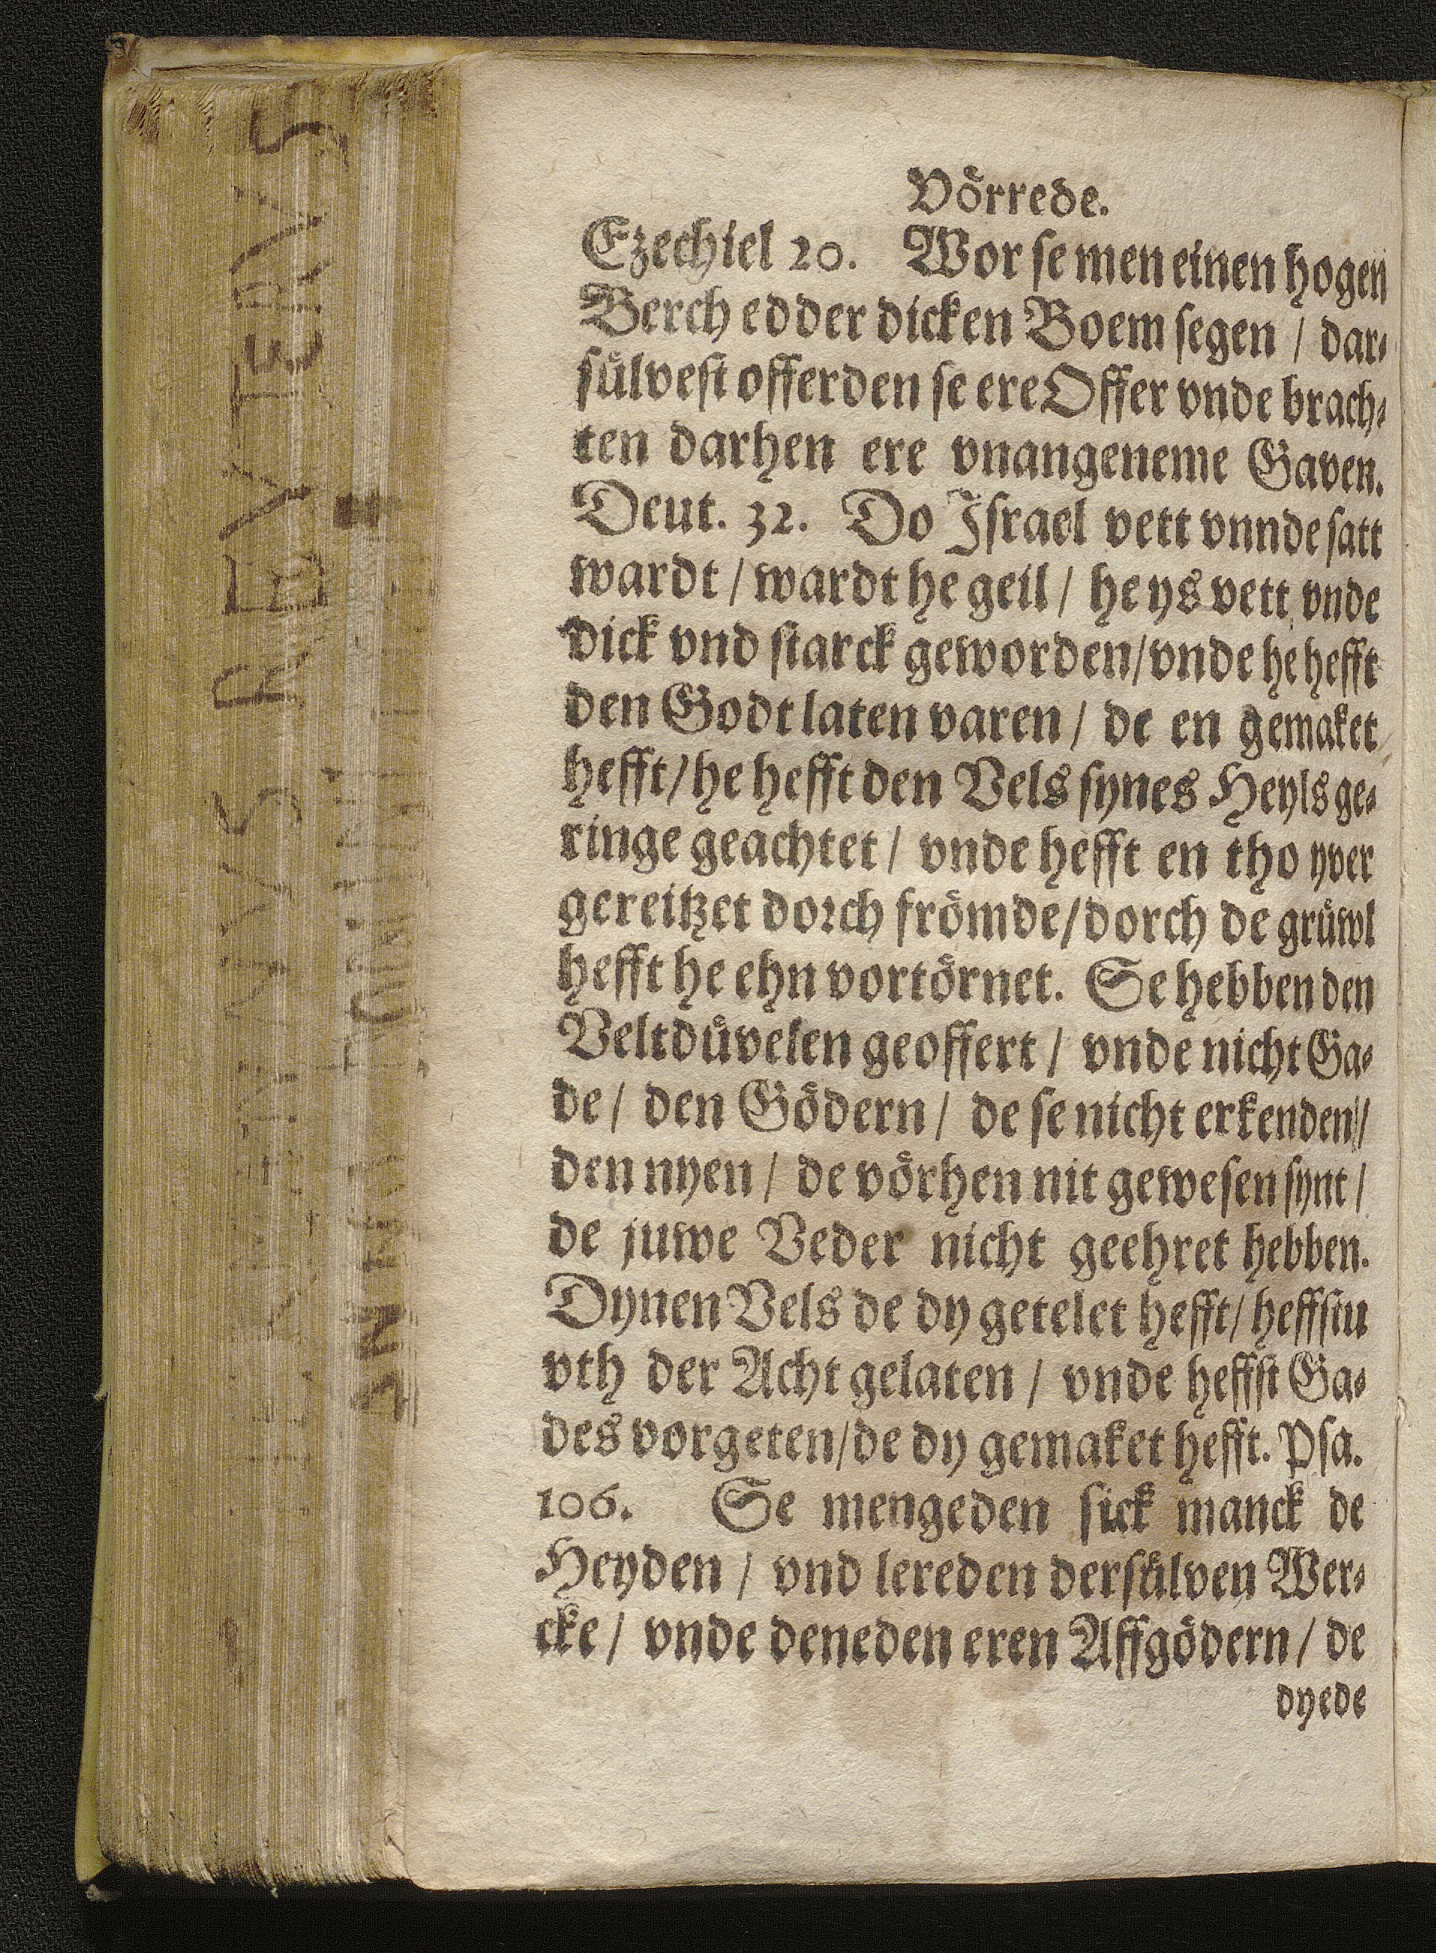 Vörrede.
Ezechiel 20. Wor se men einen hogen
Berch edder dicken Boem segen / dar-
sülvest offerden se ere Offer vnde brach-
ten darhen ere vnangeneme Gaven.
Deut. 32. Do Israel vett vnnde satt
wardt / wardt he geil / he ys vett vnde
dick vnd starck geworden / vnde he hefft
den Godt laten varen / de en gemaket
hefft / he hefft den Vels synes Heyls ge-
ringe geachtet / vnde hefft en tho yver
gereitzet dorch frömde / dorch de grüwl
hefft he ehn vortörnet. Se hebben den
Veltdüvelen geoffert / vnde nicht Ga-
de / den Gödern / de se nicht erkenden /
den nyen / de vörhen nit gewesen synt /
de juwe Veder nicht geehret hebben.
Dynen Vels de dy getelet hefft / heffstu
vth der Acht gelaten / vnde heffst Ga-
des vorgeten / de dy gemaket hefft. Psa.
106. Se mengeden sick manck de
Heyden / vnd lereden dersülven Wer-
cke / vnde deneden eren Affgödern / de
dyede